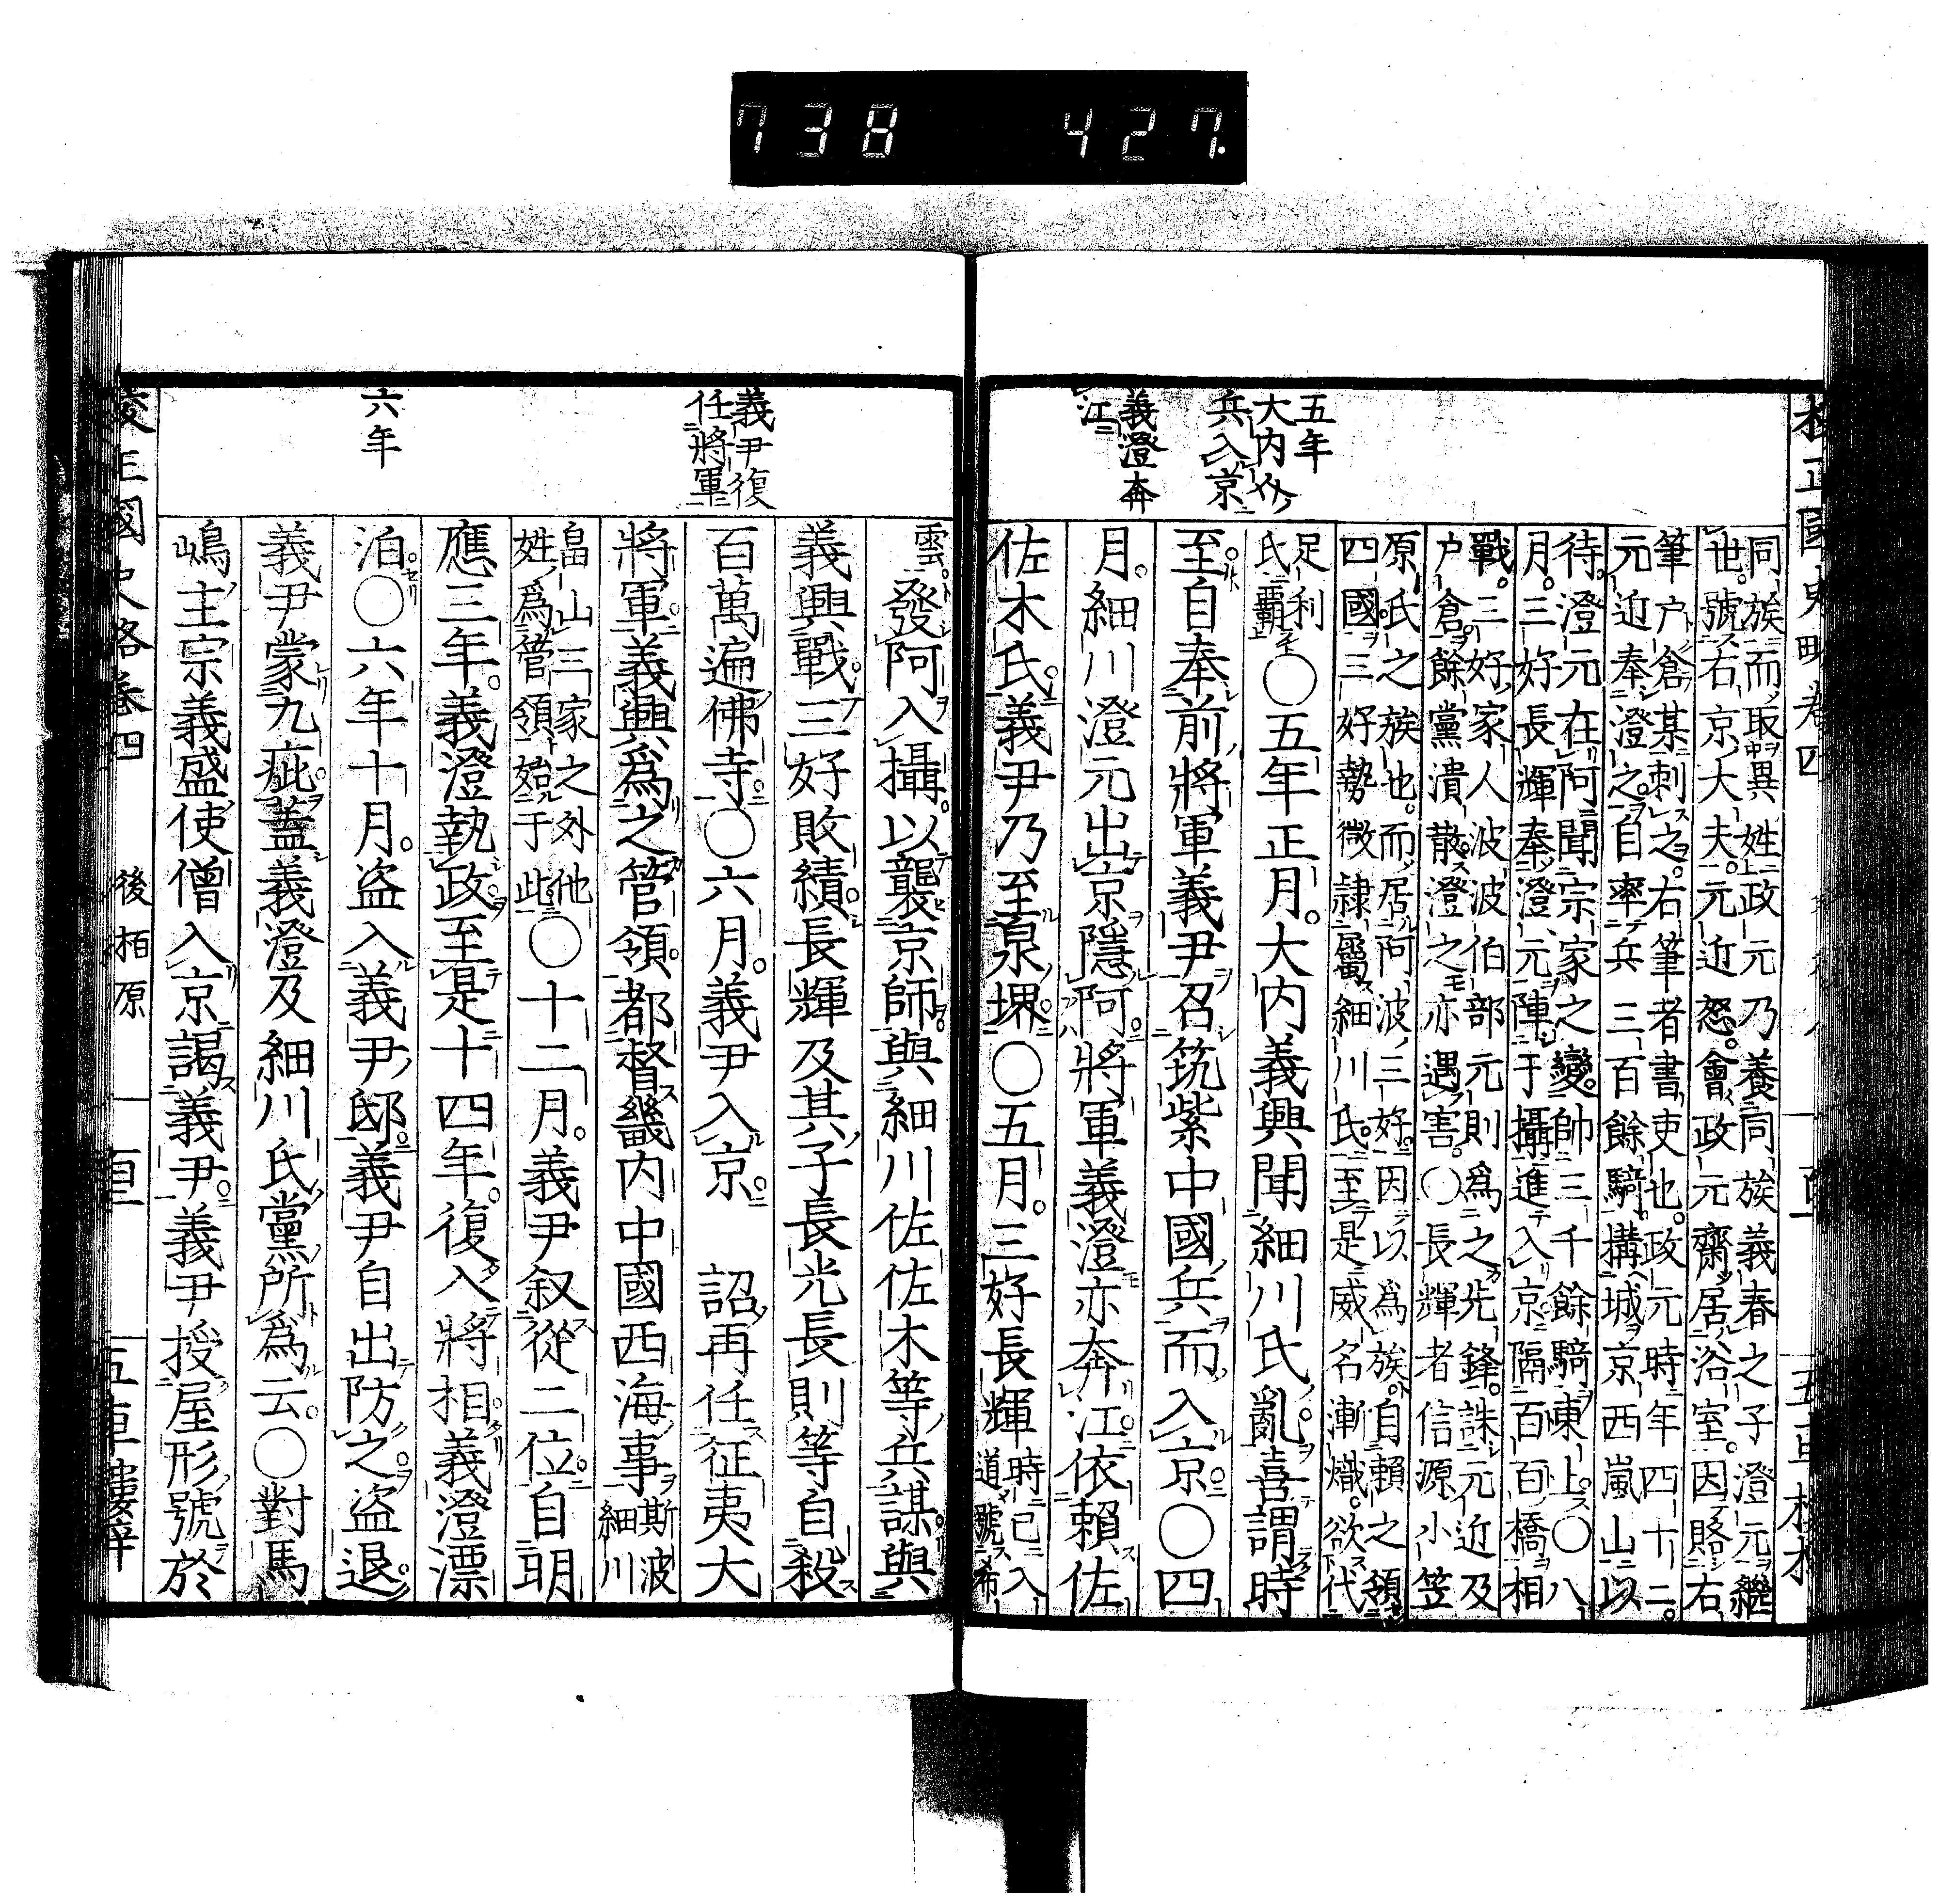 738 427.
五年
大内入
兵入京
義澄奔
江
同族而取異姓政元乃養同族義春之子澄元繼
世號右京大夫元近怒會政元齋居浴室因賂右
筆戸倉某刺之右筆者書吏也政元時年四十二
元近奉澄之自率兵三百餘騎搆城京西嵐山以
待澄元在阿聞宗家之變帥三千餘騎東上〇八
月三好長輝奉澄元陣于攝進入京隔百百橋相
戰三好家人波波伯部元則爲之先鋒誅元近及
戸倉餘黨潰散澄之亦遇害〇長輝者信源小笠
原氏之族也而居阿波三好因以爲族自賴之領
四國三好勢微隷屬細川氏至是威名漸熾欲代
足利
氏覇〇五年正月大内義興聞細川氏亂喜謂時
至自奉前將軍義尹召筑紫中國兵而入京〇四
月細川澄元出京隱阿將軍義澄亦奔江依賴佐
佐木氏義尹乃至泉堺〇五月三好長輝時已入
道號希
義尹復
任將軍
六年
雲發阿入攝以襲京師與細川佐佐木等兵謀與
義興戰三好敗績長輝及其子長光長則等自殺
百萬遍佛寺〇六月義尹入京 詔再任征夷大
將軍義興爲之管領都督畿内中國西海事斯波
細川
畠山三家之外他
姓爲管領始于此〇十二月義尹叙從二位自明
應三年義澄執政至是十四年復入將相義澄漂
泊〇六年十月盗入義尹邸義尹自出防之盗退
義尹蒙九疵蓋義澄及細川氏黨所爲云〇對馬
嶋主宗義盛使僧入京謁義尹義尹授屋形號於
國史略卷四 後栢原